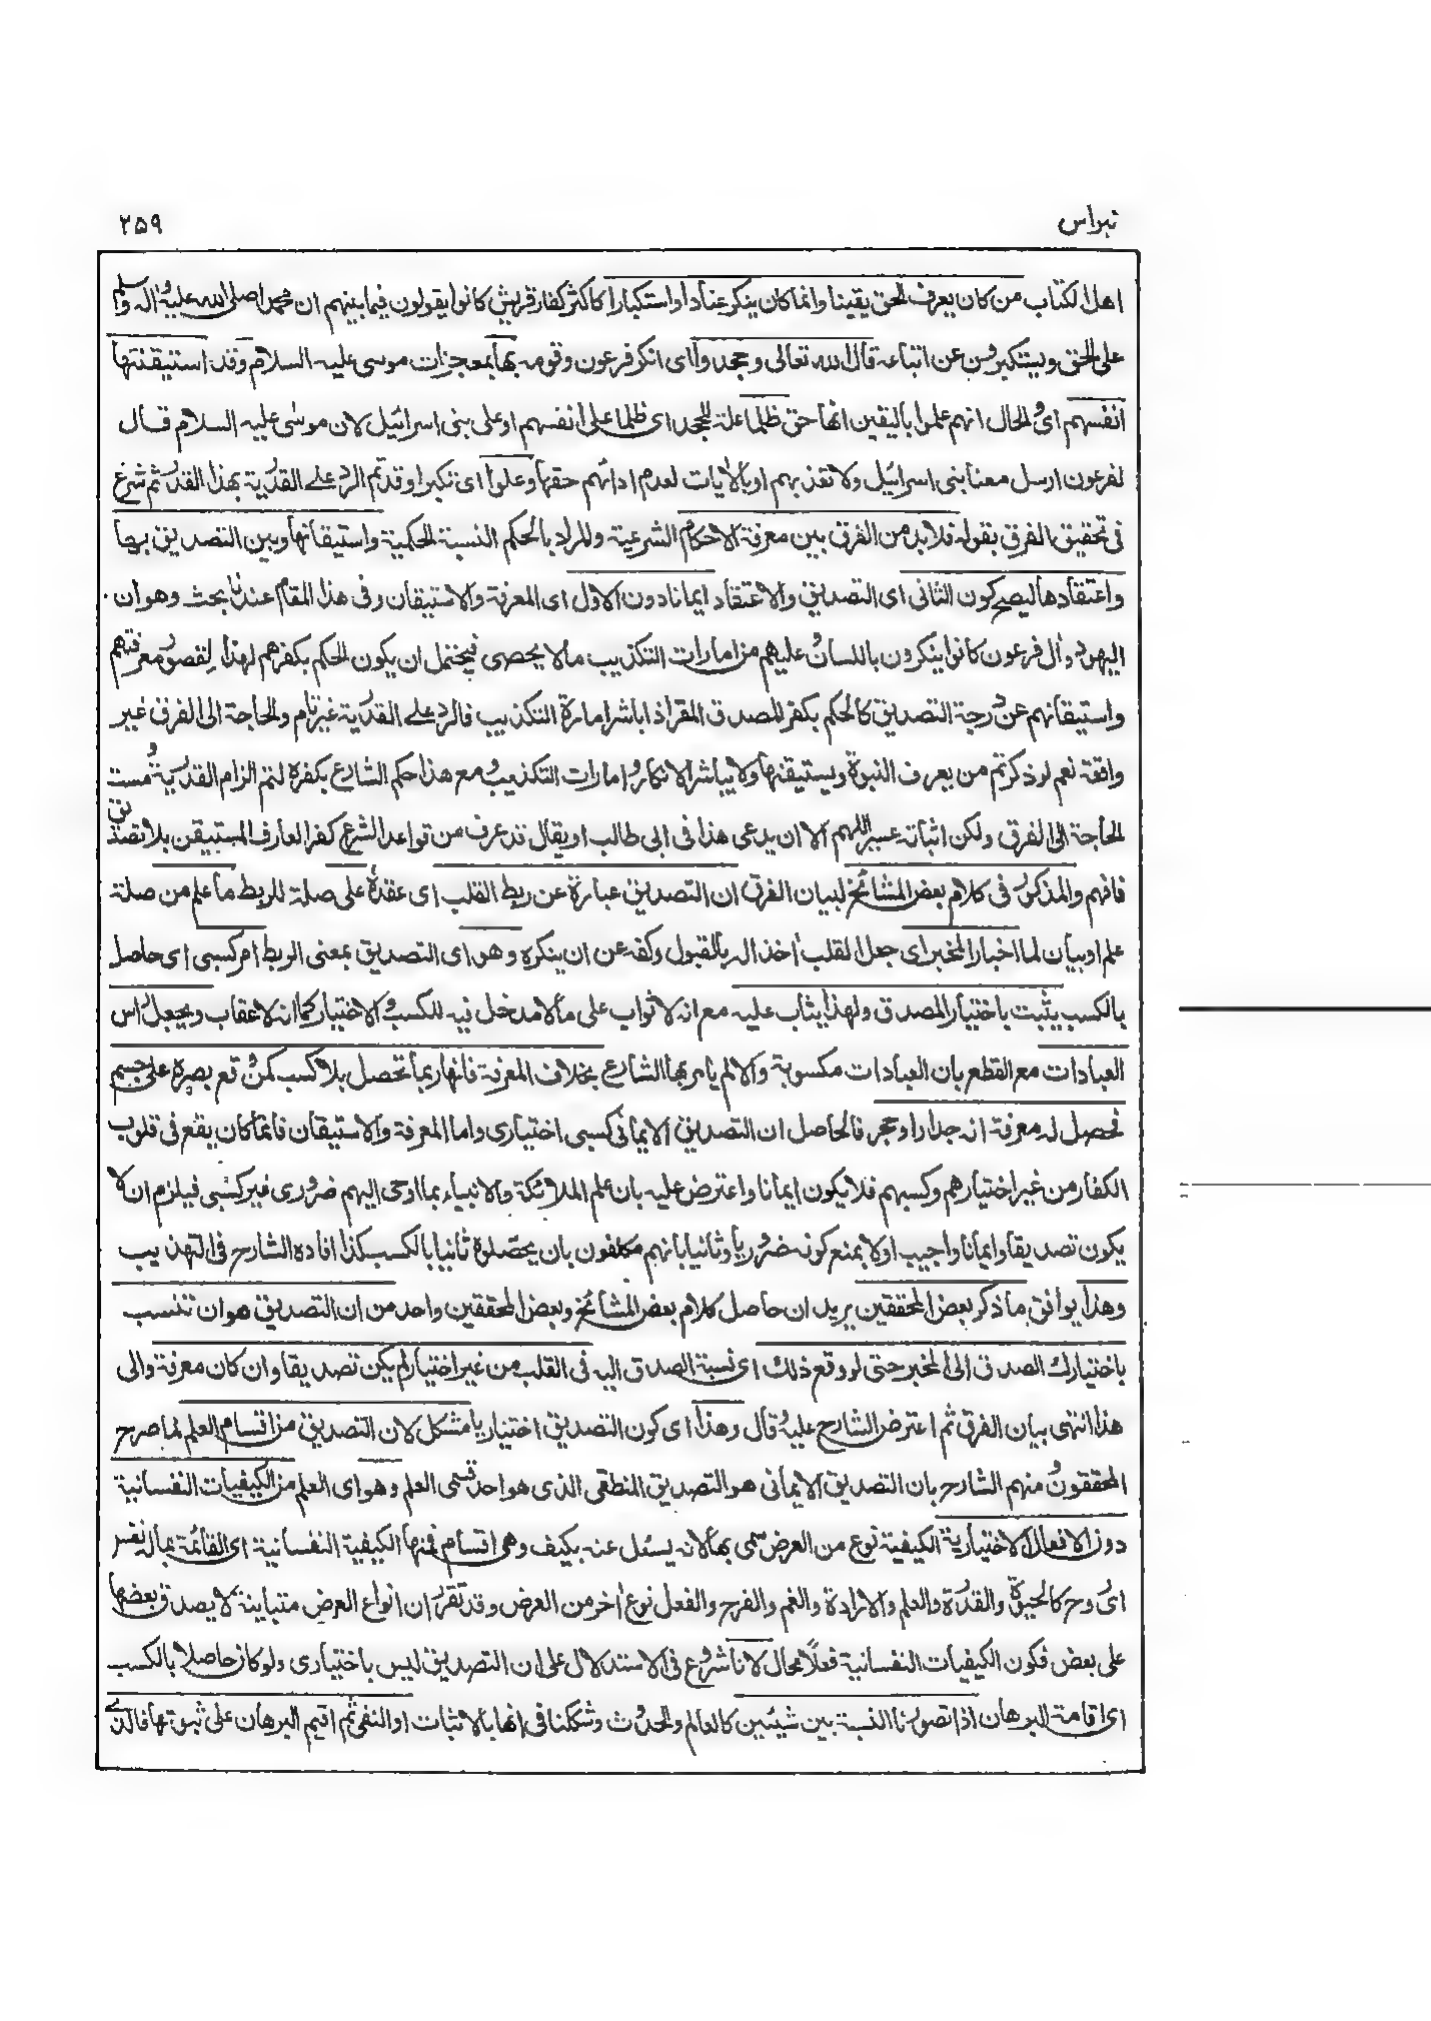 نبراس
۲۵۹
اهل الكتاب من كان يعرف الحق يقينا وانما كان ينكر عنادا واستكبارا كاكثر كفار قريش كانوا يقولون فيما بينهم ان محمدا صلى الله عليه واله وسلم
على الحق ويستكبرون عن اتباعه قال الله تعالى وجحدوا اى انكر فرعون وقومه بها بمعجزات موسى عليه السلام وقد استيقنتها
انفسهم اى والحال انهم علموا باليقين انها حق ظلما علة للجحد اى ظلما على انفسهم او على بنى اسرائيل لان موسى عليه السلام قال
لفرعون ارسل معنا بنى اسرائيل ولا تعذبهم او بالآيات لعدم ادائهم حقها وعلوا اى تكبرا وقد تم الرد على القدرية بهذا القدر ثم شرع
فى تحقيق الفرق بقوله فلا بد من الفرق بين معرفة الاحكام الشرعية والمراد بالحكم النسبة الحكمية واستيقانها وبين التصديق بها
واعتقادها ليصح كون الثانى اى التصديق والاعتقاد ايمانا دون الاول اى المعرفة والاستيقان وفى هذا المقام عندنا بحث وهو ان
اليهود وال فرعون كانوا ينكرون باللسان عليهم من امارات التكذيب ما لا يحصى فيحتمل ان يكون الحكم بكفرهم لهذا لقصور معرفتهم
واستيقانهم عن درجة التصديق كالحكم بكفر المصدق المقر اذا باشر امارة التكذيب فالرد على القدرية غير تام والحاجة الى الفرق غير
واقعة نعم لو ذكرتم من يعرف النبوة ويستيقنها ولا يباشر الانكار وامارات التكذيب ومع هذا حكم الشارع بكفره لتم الزام القدرية ومست
الحاجة الى الفرق ولكن اثباته عسير اللهم الا ان يدعى هذا فى ابى طالب او يقال قد عرف من قواعد الشرع كفر العارف المستيقن بلا تصديق
فافهم والمذكور فى كلام بعض المشائخ لبيان الفرق ان التصديق عبارة عن ربط القلب اى عقده على صلة للربط ما علم من صلة
علم او بيان لما اخبار المخبر اى جعل القلب اخذا له بالقبول وكفه عن ان ينكره وهو اى التصديق بمعنى الربط امر كسبى اى حاصل
بالكسب يثبت باختيار المصدق ولهذا يثاب عليه مع انه لا ثواب على ما لا مدخل فيه للكسب والاختيار كما انه لا عقاب ويجعل راس
العبادات مع القطع بان العبادات مكسوبة والا لم يامر بها الشارع بخلاف المعرفة فانها ربما تحصل بلا كسب كمن وقع بصره على جسم
فحصل له معرفة انه جدار او حجر فالحاصل ان التصديق الايمانى كسبى اختيارى واما المعرفة والاستيقان فانما كان يقع فى قلوب
الكفار من غير اختيارهم وكسبهم فلا يكون ايمانا واعترض عليه بان علم الملائكة والانبياء بما اوحى اليهم ضرورى غير كسبى فيلزم ان لا
يكون تصديقا وايمانا واجيب اولا بمنع كونه ضروريا وثانيا بانهم مكلفون بان يحصلوه ثانيا بالكسب كذا افاده الشارح فى التهذيب
وهذا يوافق ما ذكر بعض المحققين يريد ان حاصل كلام بعض المشائخ وبعض المحققين واحد من ان التصديق هو ان تنسب
باختيارك الصدق الى المخبر حتى لو وقع ذلك اى نسبة الصدق اليه فى القلب من غير اختيار لم يكن تصديقا وان كان معرفة والى
هذا انتهى بيان الفرق ثم اعترض الشارح عليه وقال وهذا اى كون التصديق اختياريا مشكل لان التصديق من اقسام العلم لما صرح
المحققون ومنهم الشارح بان التصديق الايمانى هو التصديق المنطقى الذى هو احد قسمى العلم وهو اى العلم من الكيفيات النفسانية
دون الافعال الاختيارية الكيفية نوع من العرض سمى بها لانه يسئل عنه بكيف وهى اقسام فمنها الكيفية النفسانية اى القائمة بما له نفس
اى روح كالحيوة والقدرة والعلم والارادة والغم والفرح والفعل نوع اخر من العرض وقد تقرر ان انواع العرض متباينة لا يصدق بعضها
على بعض فكون الكيفيات النفسانية فعلا محال لانا شروع فى الاستدلال على ان التصديق ليس باختيارى ولو كان حاصلا بالكسب
اى اقامة البرهان اذا تصورنا النسبة بين شيئين كالعالم والحدوث وشككنا فى انها بالاثبات او النفى ثم اقيم البرهان على ثبوتها فالذى